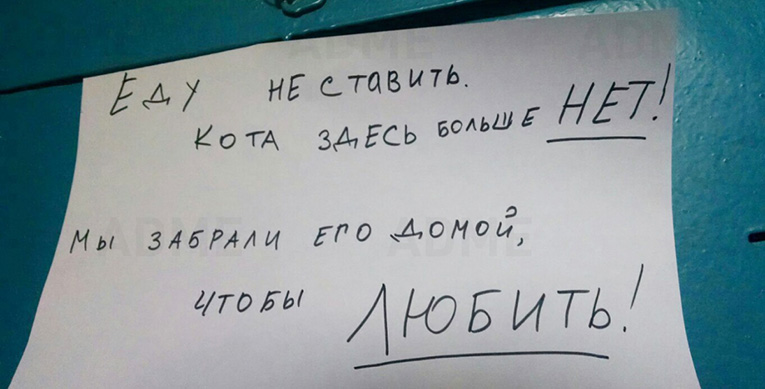 ЕДУ НЕ СТАВИТЬ.
КОТА ЗДЕСЬ БОЛЬШЕ НЕТ!
МЫ ЗАБРАЛИ ЕГО ДОМОЙ,
ЧТОБЫ ЛЮБИТЬ!